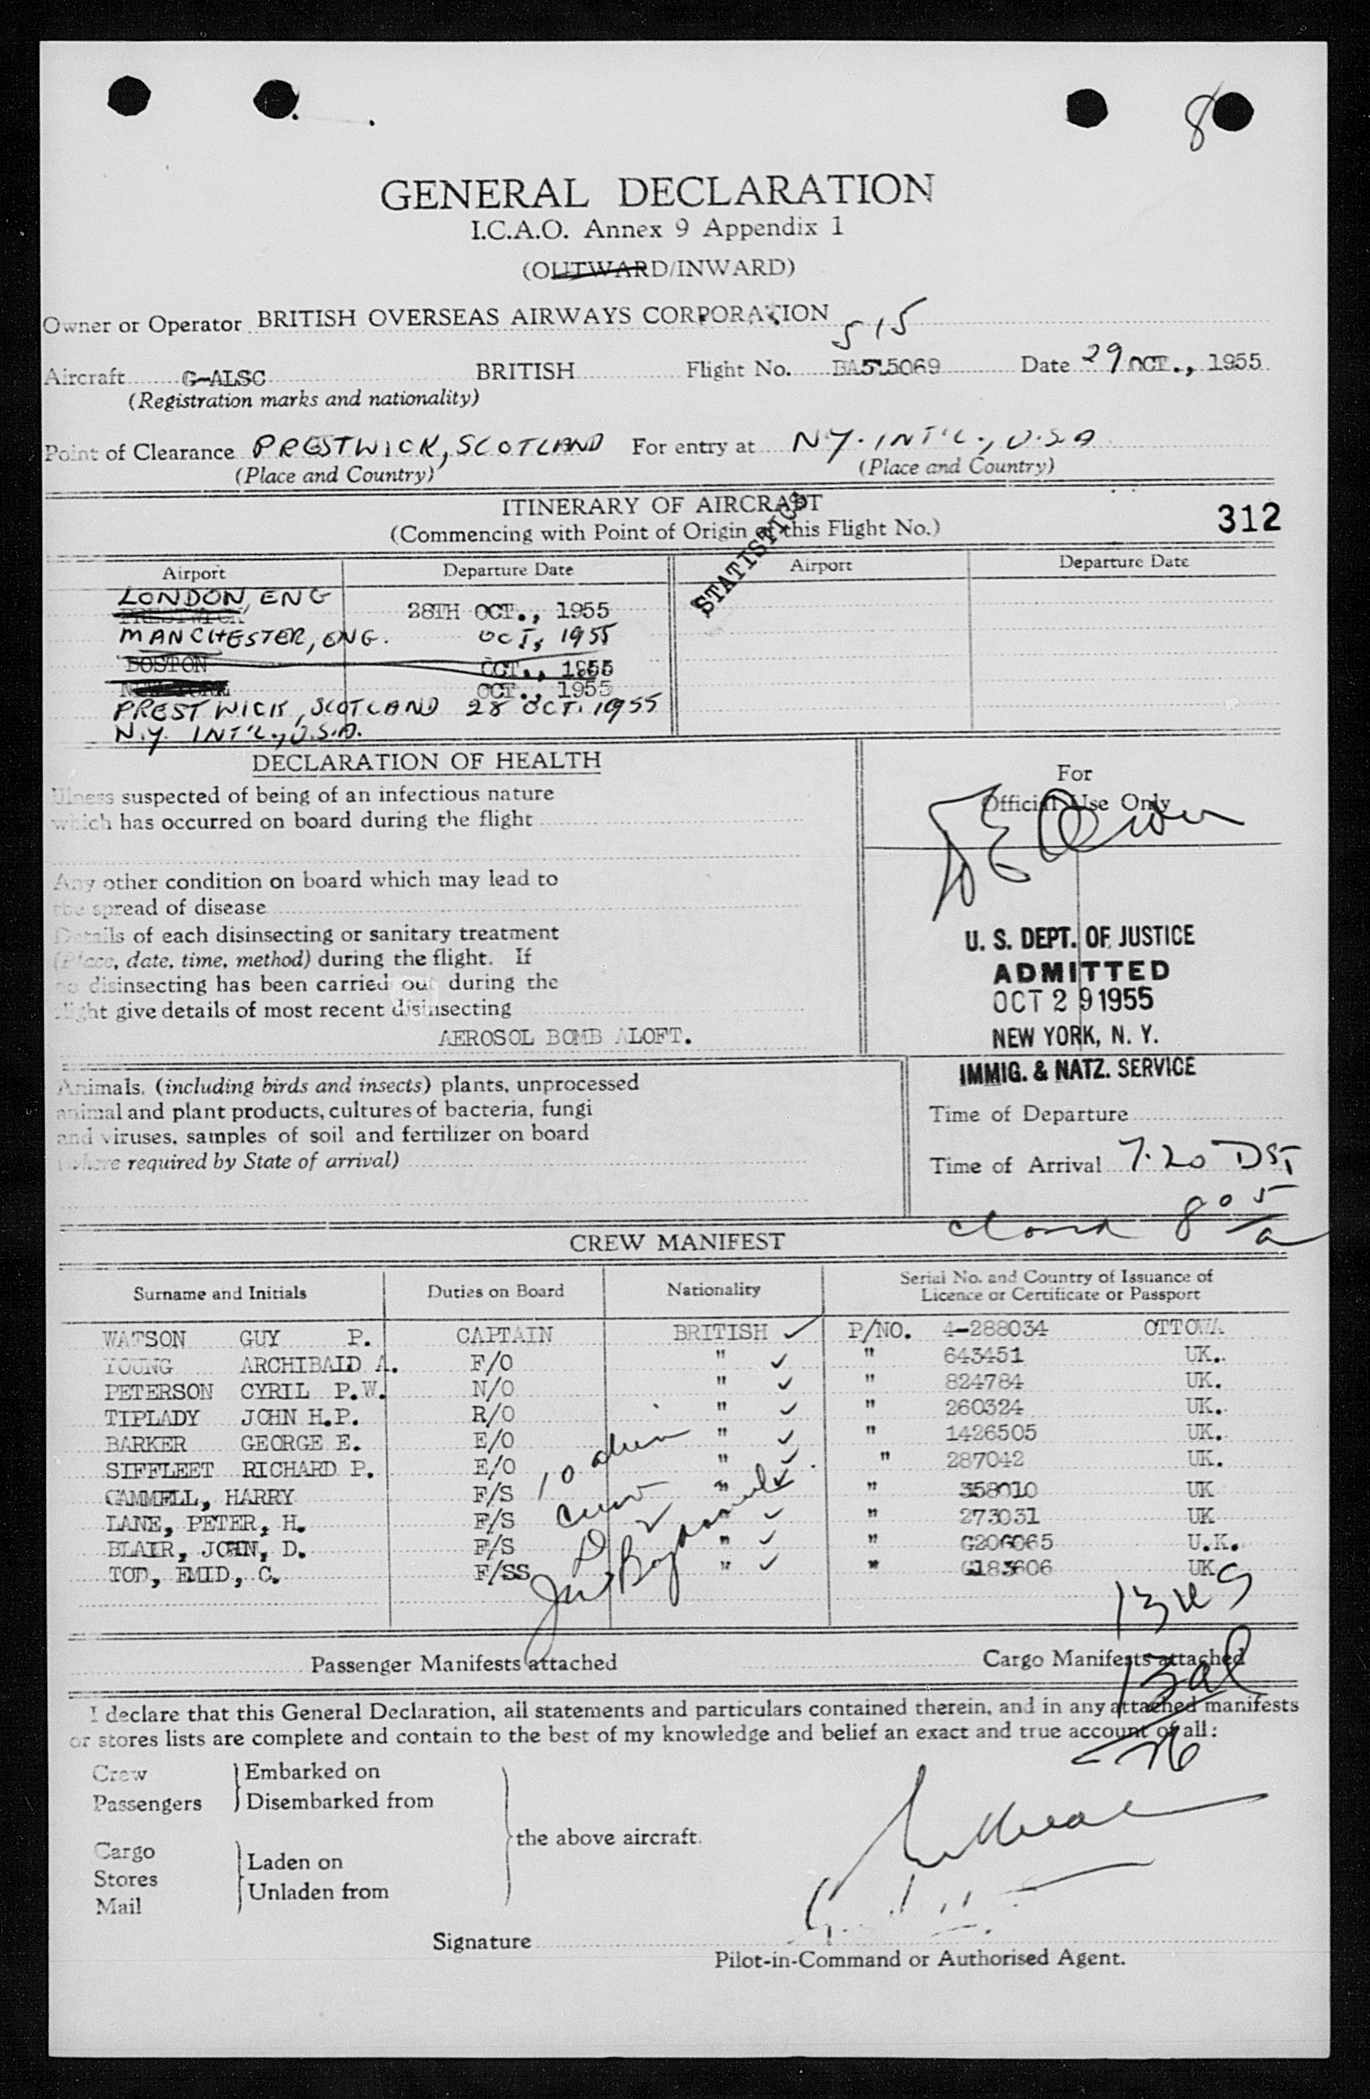 8
GENERAL DECLARATION
I.C.A.O. Annex 9 Appendix 1
(OUTWARD/INWARD)
Owner or Operator BRITISH OVERSEAS AIRWAYS CORPORATION 515
Aircraft G-ALSC BRITISH Flight No. BA515069 Date 29 OCT., 1955
(Registration marks and nationality)
Point of Clearance PRESTWICK, SCOTLAND For entry at N.Y. INT'L., U.S.A
(Place and Country) (Place and Country)
ITINERARY OF AIRCRAFT
(Commencing with Point of Origin of this Flight No.) 312
STATISTICS
Airport Departure Date Airport Departure Date
LONDON, ENG
PRESTWICK 28TH OCT., 1955
MANCHESTER, ENG. OCT, 1955
BOSTON OCT., 1955
NEW YORK OCT., 1955
PRESTWICK, SCOTLAND 28 OCT. 1955
N.Y. INT'L., U.S.A.
DECLARATION OF HEALTH
Illness suspected of being of an infectious nature
which has occurred on board during the flight
Any other condition on board which may lead to
the spread of disease
Details of each disinsecting or sanitary treatment
(Place, date, time, method) during the flight. If
no disinsecting has been carried out during the
flight give details of most recent disinsecting
AEROSOL BOMB ALOFT.
For
Official Use Only
U. S. DEPT. OF JUSTICE
ADMITTED
OCT 29 1955
NEW YORK, N. Y.
IMMIG. & NATZ. SERVICE
Animals, (including birds and insects) plants, unprocessed
animal and plant products, cultures of bacteria, fungi
and viruses, samples of soil and fertilizer on board
(where required by State of arrival)
Time of Departure
Time of Arrival 7.20 DST
closed 8 05/a
CREW MANIFEST
Surname and Initials Duties on Board Nationality Serial No. and Country of Issuance of
Licence or Certificate or Passport
WATSON GUY P. CAPTAIN BRITISH ✓ P/NO. 4-288034 OTTOWA
YOUNG ARCHIBALD A. F/O " ✓ " 643451 UK.
PETERSON CYRIL P.W. N/O " ✓ " 824784 UK.
TIPLADY JOHN H.P. R/O " ✓ " 260324 UK.
BARKER GEORGE E. E/O " ✓ " 1426505 UK.
SIFFLEET RICHARD P. E/O " ✓ " 287042 UK.
CAMMELL, HARRY F/S " ✓ " 358010 UK
LANE, PETER, H. F/S " ✓ " 273031 UK
BLAIR, JOHN, D. F/S " ✓ " G206065 U.K.
TOD, EMID, C. F/SS " ✓ " G183606 UK
10 alien
crew
Passenger Manifests attached Cargo Manifests attached
I declare that this General Declaration, all statements and particulars contained therein, and in any attached manifests
or stores lists are complete and contain to the best of my knowledge and belief an exact and true account of all:
Crew Embarked on
Passengers Disembarked from
the above aircraft.
Cargo Laden on
Stores
Mail Unladen from
Signature
Pilot-in-Command or Authorised Agent.